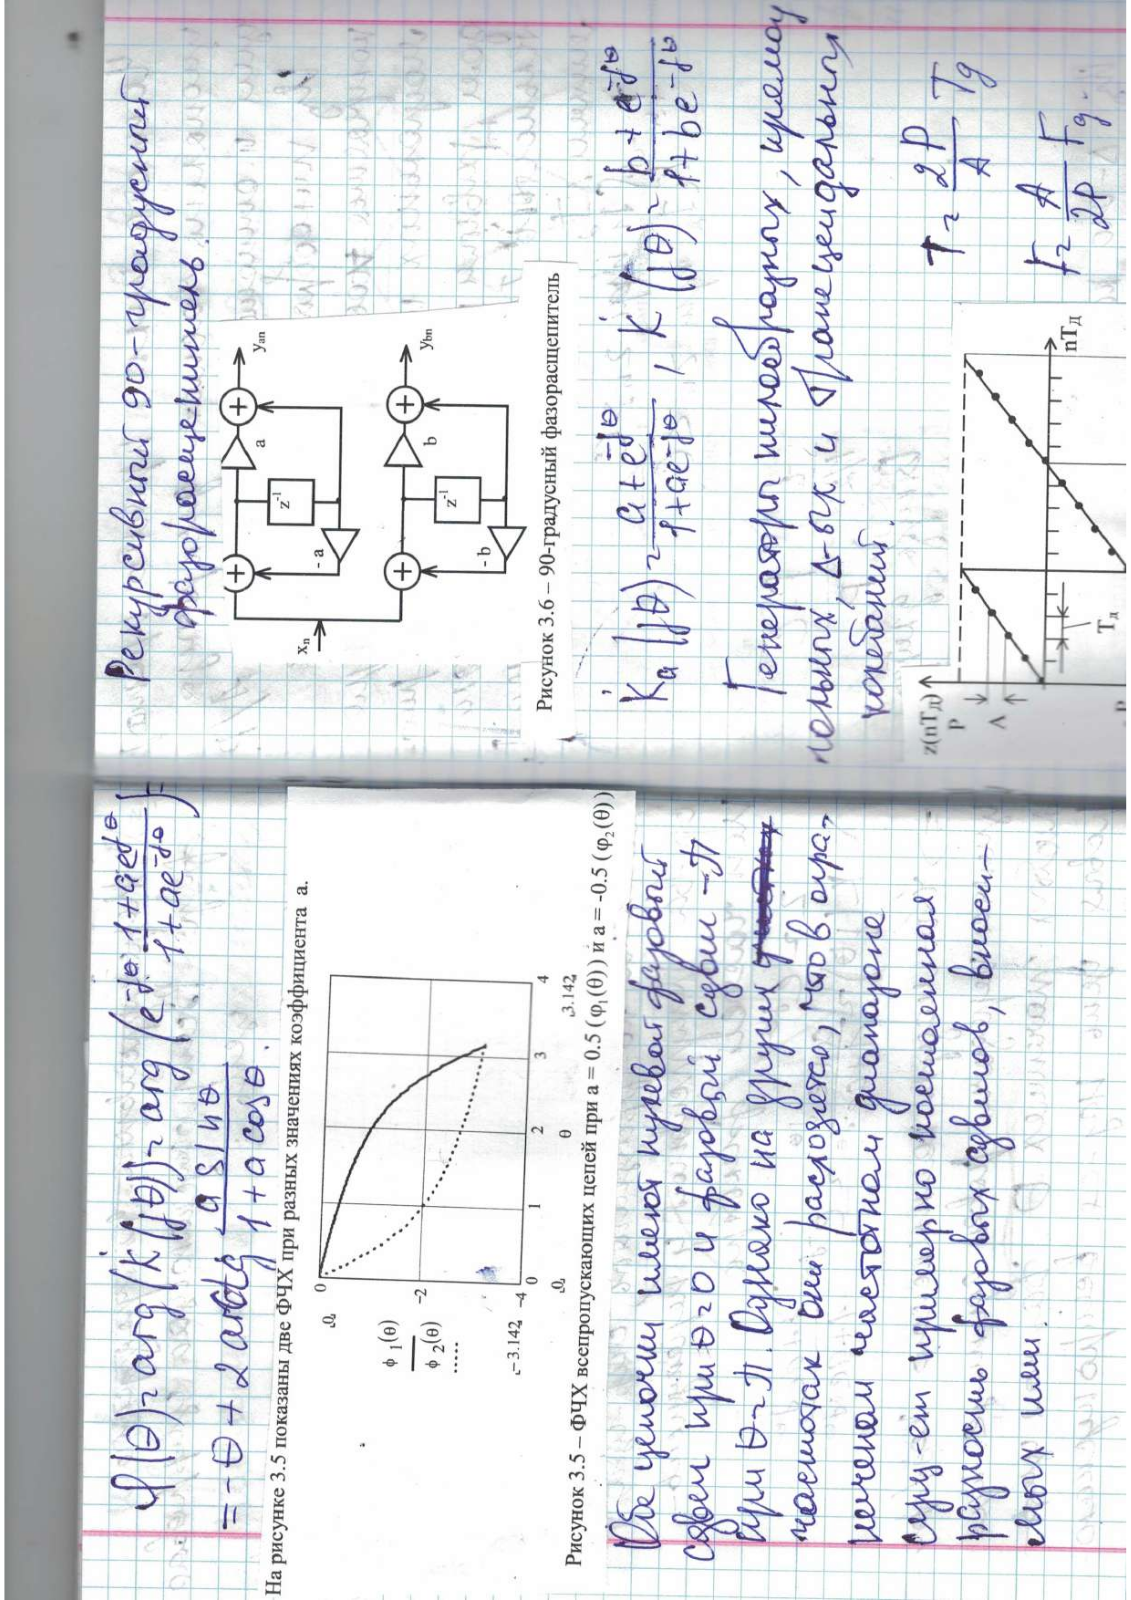 φ(θ) = arg(K̇(jθ)) = arg(e^-jθ · (1+ae^jθ)/(1+ae^-jθ)) =
= -θ + 2arctg (a sinθ)/(1+a cosθ).
На рисунке 3.5 показаны две ФЧХ при разных значениях коэффициента a.
0
φ 1(θ)
φ 2(θ)
−2
−3.142
−4
0 1 2 3 4
0 θ 3.142
Рисунок 3.5 – ФЧХ всепропускающих цепей при a = 0.5 (φ1(θ)) и a = -0.5 (φ2(θ))
Обе цепочки имеют нулевой фазовый
сдвиг при θ=0 и фазовый сдвиг -π
при θ=π. Однако на других
частотах они расходятся, что в огра-
ниченном частотном диапазоне
сущ-ет примерно постоянная
разность фазовых сдвигов, вноси-
мых ими.
Рекурсивный 90-градусный
фазорасщепитель.
xn
a
z-1
- a
yan
b
z-1
- b
ybn
Рисунок 3.6 – 90-градусный фазорасщепитель
K̇a(jθ) = (a+e^-jθ)/(1+ae^-jθ), K̇(jθ) = (b+e^-jθ)/(1+be^-jθ)
Генераторы пилообразных, прямоу
гольных, Δ-ых и трапецеидальных
колебаний.
z(nTд)
P
A
Tд
nTд
T = 2P/A Tд
F = A/2P Fд.